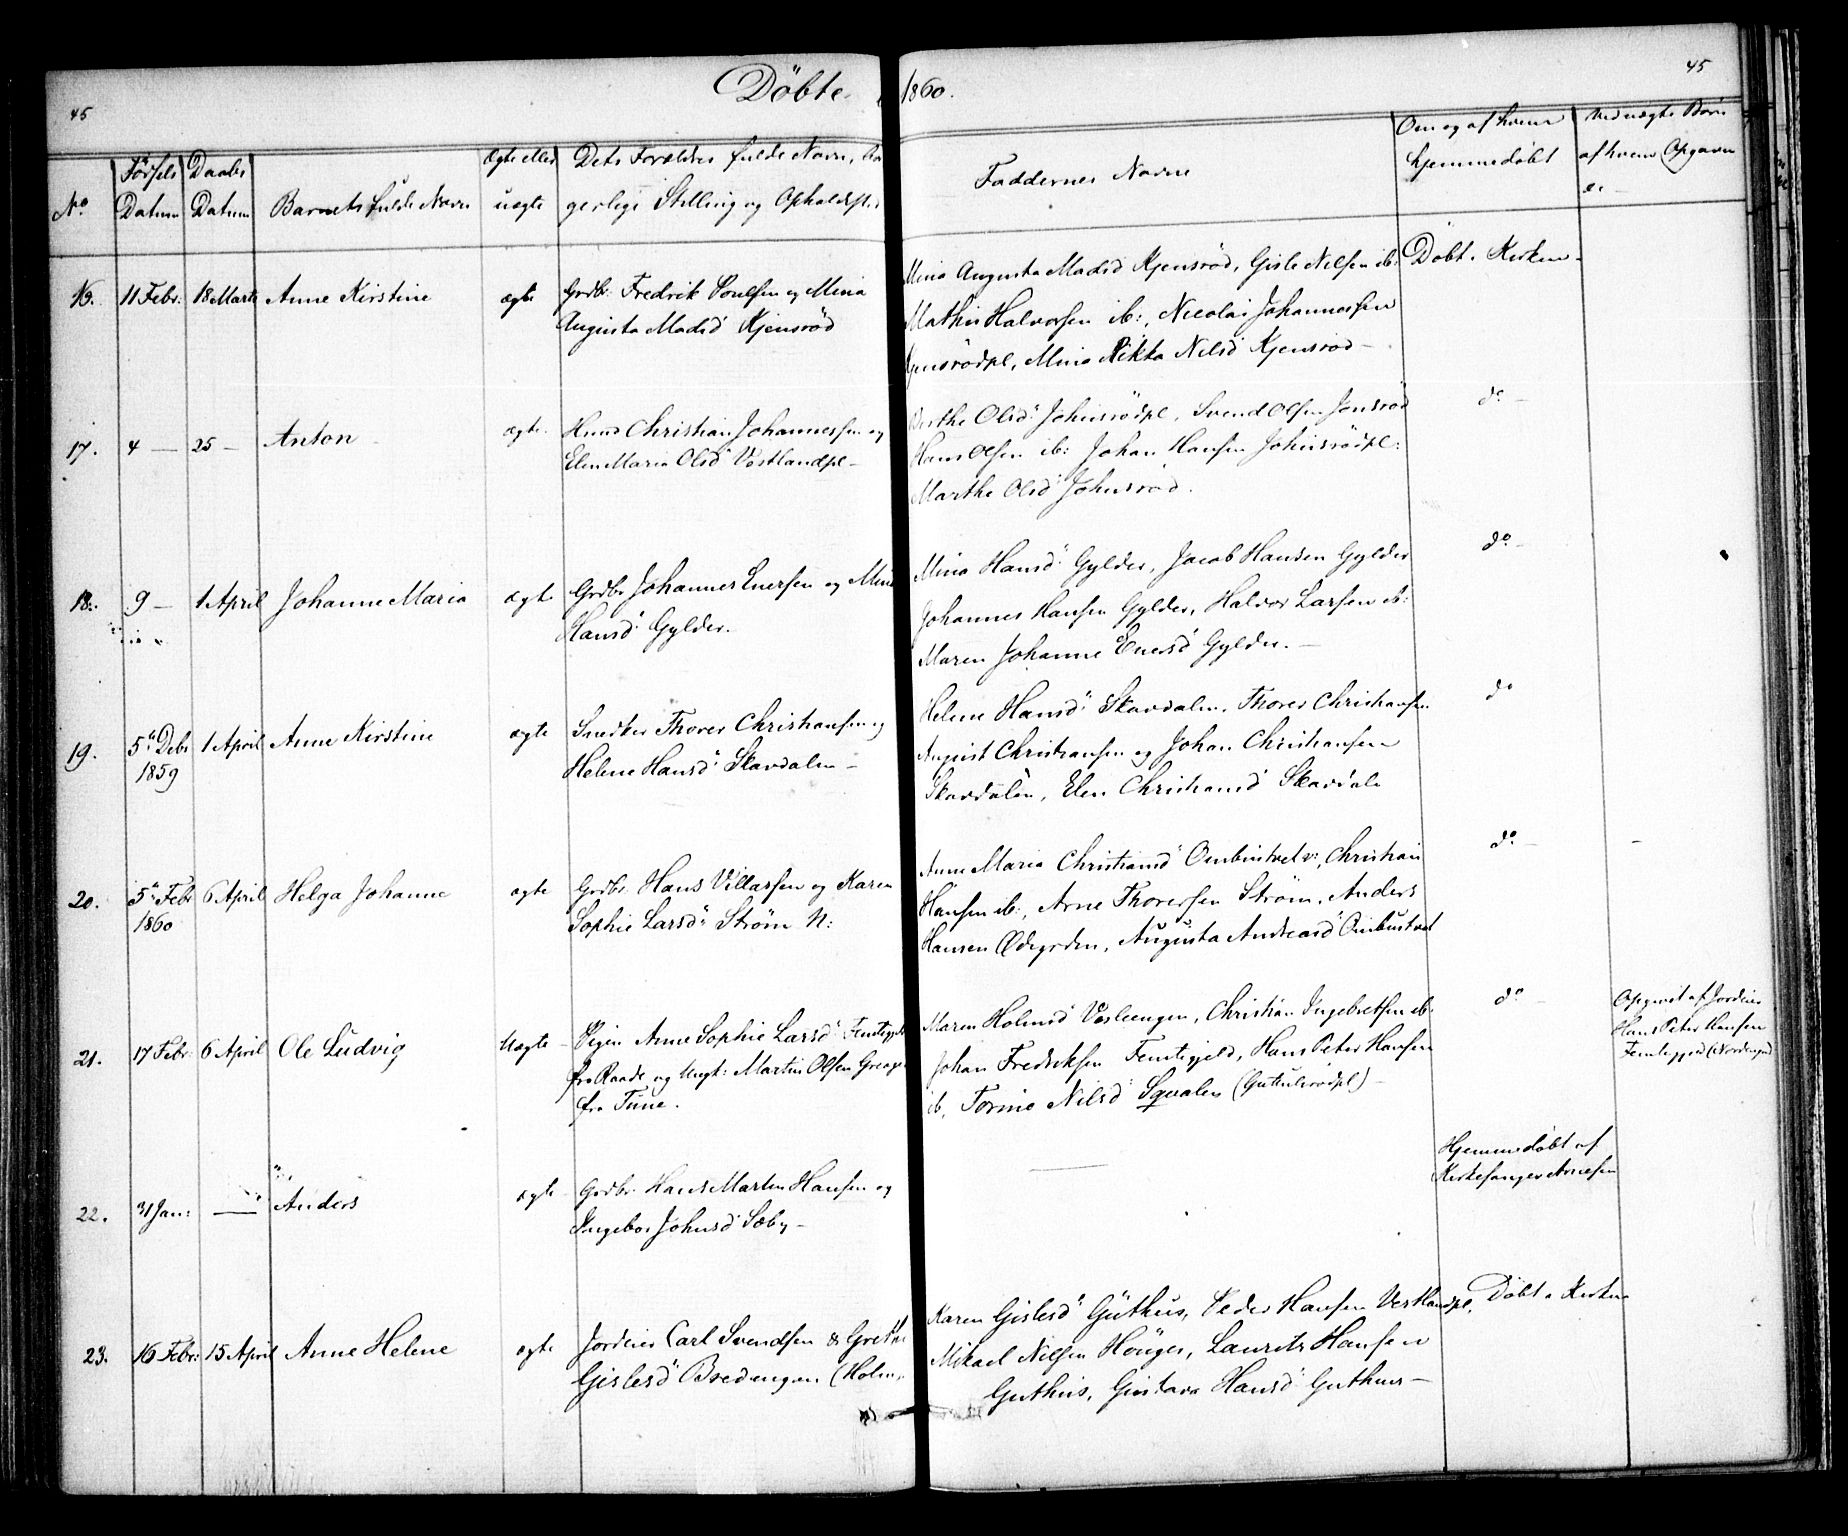 45
Döbte 1860.
45
No
Fødsels Datum
Daabs Datum
Barnets fulde Navn
Ægte eller uægte
Dets Forældres fulde Navn, Bor
gerlige Stilling og Opholdst
Faddernes Navne
Om og af hvem
hjemmedöbt
Ved uægte Børn
af hvem Opgaven
er
16. 11 Febr: 18 Marts Anne Kirstine ægte Grdbr: Fredrik Poulsen og Mina
Augusta Madsd Kjensröd
Mina Augusta Madsd Kjensröd, Gisle Nilsen ib:
Mathis Halvorsen ib:, Nicolai Johannessen
Kjensrödpl, Mina Rikka Nilsd Kjensröd –
Döbt i Kirken
17. 4 — 25 — Anton ægte Huusm Christian Johannessen og
Elen Maria Olsd Vestlandpl –
Berthe Olsd Johnsrödpl, Svend Olsen Jonsröd
Hans Olsen ib: Johan Hansen Johnsrödpl:
Marthe Olsd Johnsröd.
do –
18. 9 – 1 April Johanne Maria ægte Grdbr Johannes Enersen og Mina
Hansd Gylder.
Mina Hansd Gylder, Jacob Hansen Gylder
Johannes Hansen Gylder, Halvor Larsen ib:
Maren Johanne Enersd Gylder. –
do –
19. 5 Debr 1859 1 April Anne Kirstine ægte Snedker Thorer Christiansen og
Helene Hansd Skavdalen –
Helene Hansd Skavdalen, Thorer Christiansen
August Christiansen og Johan Christiansen
Skavdalen, Elen Christiansd Skavdale
do
20. 5 Febr 1860 6 April Helga Johanne ægte Grdbr Hans Villassen og Karen
Sophie Larsd Ström N:
Anne Maria Christiansd Ombustvet v:, Christian
Hansen ib:, Arne Thorersen Ström, Anders
Hansen Ødegrden, Augusta Andreasd Ombustvet
do –
21. 17 Febr. 6 April Ole Ludvig Uægte – Pigen Anne Sophie Larsd Femtegjeld
fra Raade og Ungk: Martin Olsen
fra Tune.
Maren Holmsd Vesleengen, Christian Ingebretsen ib:
Johan Fredriksen Femtegjeld, Hans Peter Hansen
ib, Torine Nilsd Sqvalen (Gutulsrödpl) –
do –
Opgivet af Jordeier
Hans Peter Hansen
Femtegjeld (Nordengen)
22. 31 Jan: — Anders ægte Grdbr. Hans Martin Hansen og
Ingebor Johnsd Sæby –
Hjemmedöbt af
Kirkesanger Arnesen
23. 16 Febr: 15 April Anne Helene ægte Jordeier Carl Svendsen & Grethe
Gislesd Bredengen (Holm
Karen Gislesd Guthus, Peder Hansen Vestlandpl,
Mikael Nilsen Höuger, Laurits Hansen
Guthus, Gustava Hansd Guthus –
Döbt i Kirken